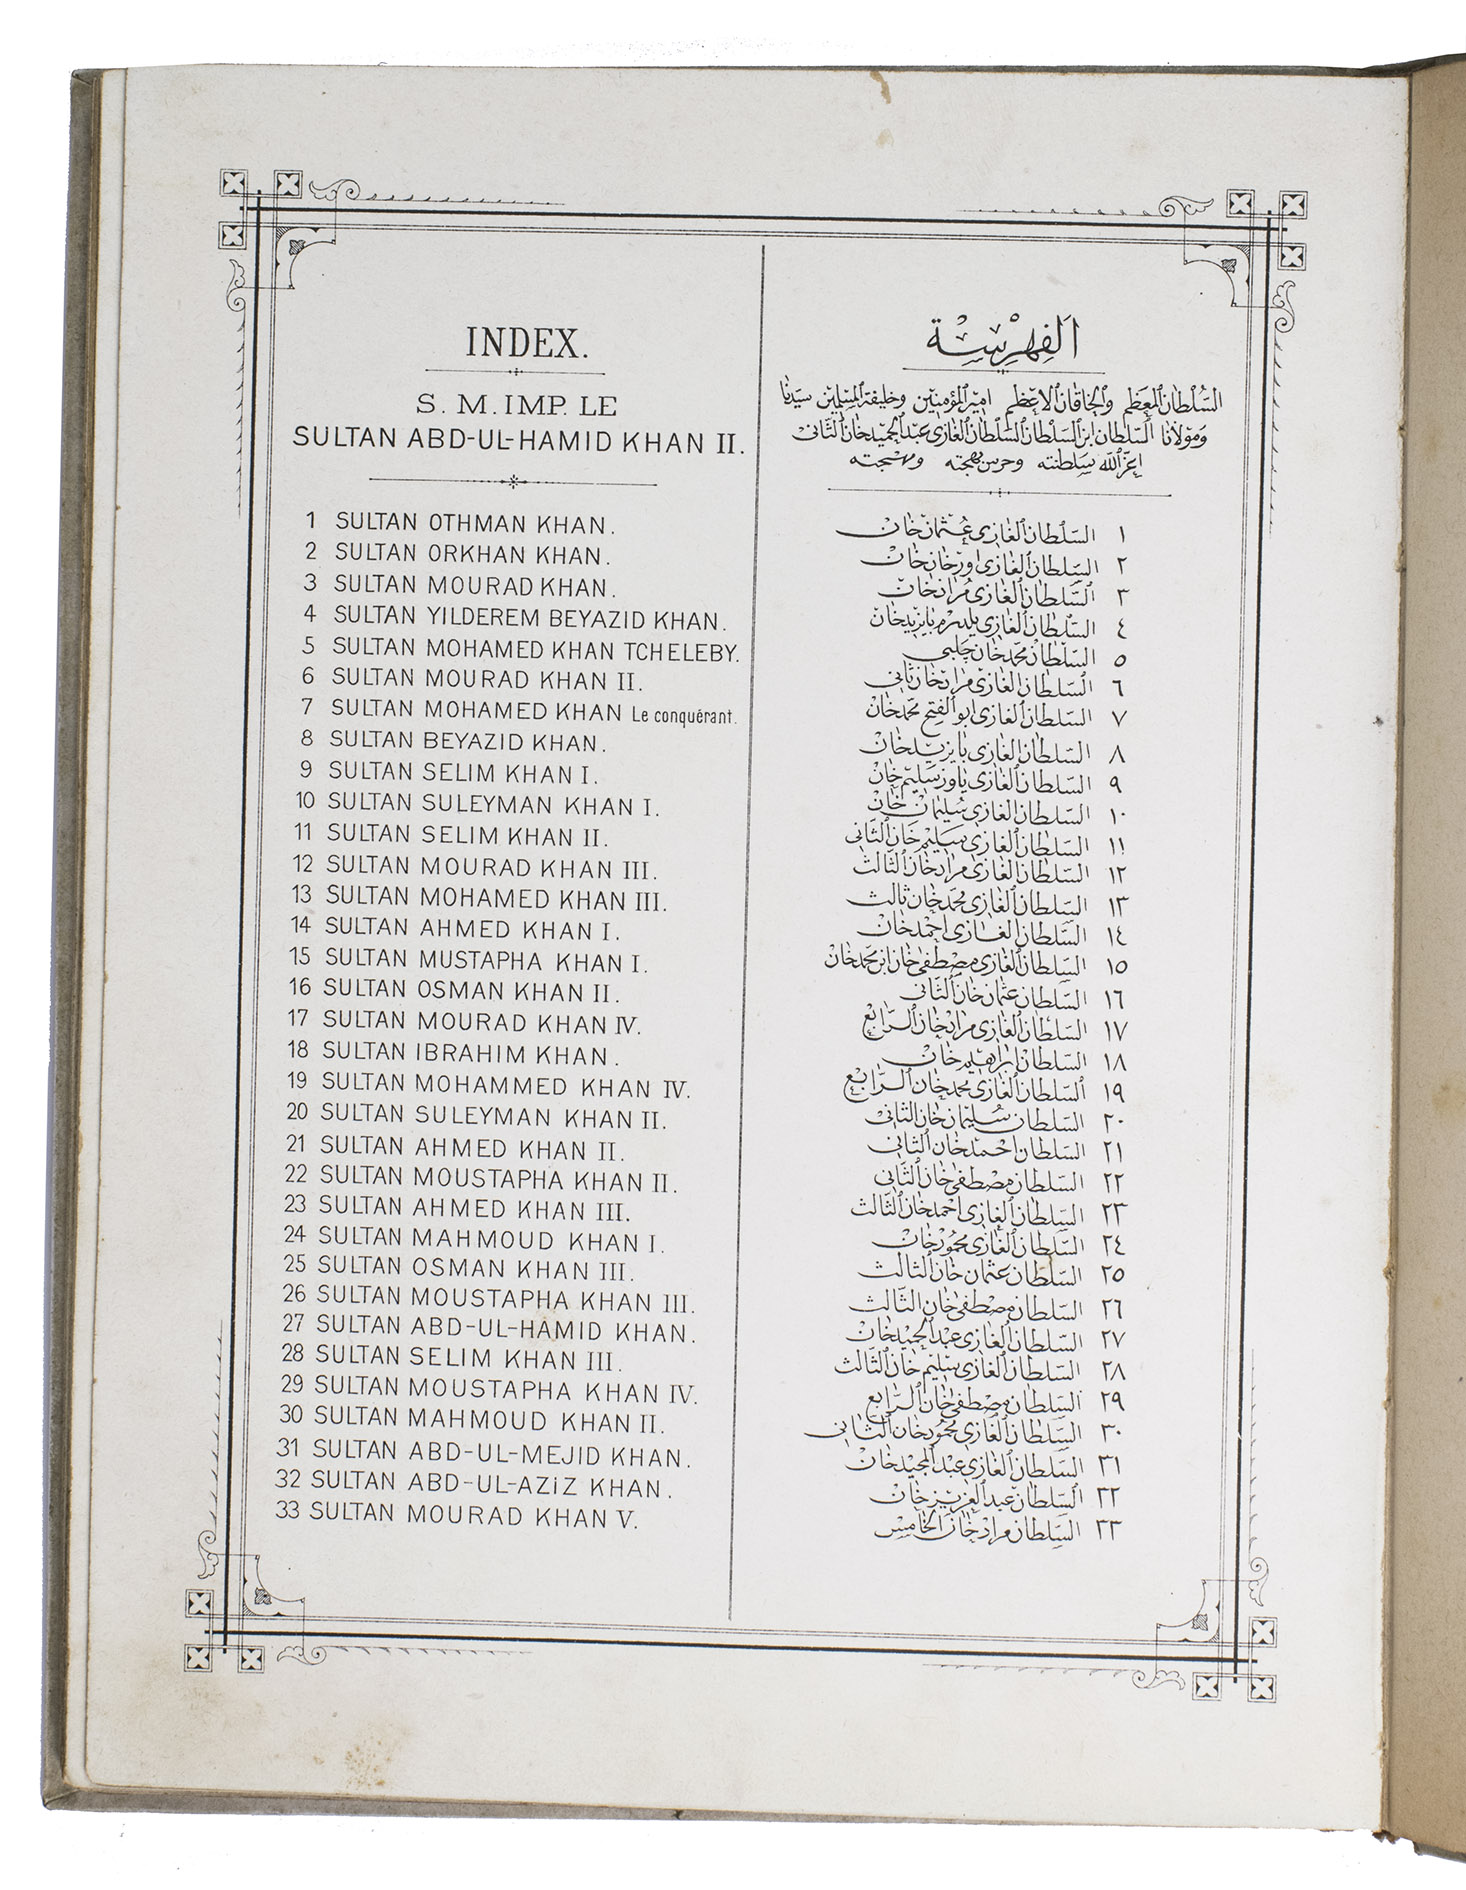 INDEX.
S. M. IMP. LE
SULTAN ABD-UL-HAMID KHAN II.
1 SULTAN OTHMAN KHAN.
2 SULTAN ORKHAN KHAN.
3 SULTAN MOURAD KHAN.
4 SULTAN YILDEREM BEYAZID KHAN.
5 SULTAN MOHAMED KHAN TCHELEBY.
6 SULTAN MOURAD KHAN II.
7 SULTAN MOHAMED KHAN Le conquérant.
8 SULTAN BEYAZID KHAN.
9 SULTAN SELIM KHAN I.
10 SULTAN SULEYMAN KHAN I.
11 SULTAN SELIM KHAN II.
12 SULTAN MOURAD KHAN III.
13 SULTAN MOHAMED KHAN III.
14 SULTAN AHMED KHAN I.
15 SULTAN MUSTAPHA KHAN I.
16 SULTAN OSMAN KHAN II.
17 SULTAN MOURAD KHAN IV.
18 SULTAN IBRAHIM KHAN.
19 SULTAN MOHAMMED KHAN IV.
20 SULTAN SULEYMAN KHAN II.
21 SULTAN AHMED KHAN II.
22 SULTAN MOUSTAPHA KHAN II.
23 SULTAN AHMED KHAN III.
24 SULTAN MAHMOUD KHAN I.
25 SULTAN OSMAN KHAN III.
26 SULTAN MOUSTAPHA KHAN III.
27 SULTAN ABD-UL-HAMID KHAN.
28 SULTAN SELIM KHAN III.
29 SULTAN MOUSTAPHA KHAN IV.
30 SULTAN MAHMOUD KHAN II.
31 SULTAN ABD-UL-MEJID KHAN.
32 SULTAN ABD-UL-AZiZ KHAN.
33 SULTAN MOURAD KHAN V.
الفهرسة
السلطان المعظم والخاقان الاعظم امير المؤمنين وخليفة المسلمين سيدنا
ومولانا السلطان ابن السلطان السلطان الغازى عبد الحميد خان الثانى
اعز الله سلطنته وحرس بهجته ومهجته
١ السلطان الغازى عثمان خان
٢ السلطان الغازى اورخان خان
٣ السلطان الغازى مراد خان
٤ السلطان الغازى يلدرم بايزيد خان
٥ السلطان محمد خان چلبى
٦ السلطان الغازى مراد خان ثانى
٧ السلطان الغازى ابو الفتح محمد خان
٨ السلطان الغازى بايزيد خان
٩ السلطان الغازى ياوز سليم خان
١٠ السلطان الغازى سليمان خان
١١ السلطان الغازى سليم خان الثانى
١٢ السلطان الغازى مراد خان الثالث
١٣ السلطان الغازى محمد خان ثالث
١٤ السلطان الغازى احمد خان
١٥ السلطان الغازى مصطفى خان ابن محمد خان
١٦ السلطان عثمان خان الثانى
١٧ السلطان الغازى مراد خان الرابع
١٨ السلطان ابراهيم خان
١٩ السلطان الغازى محمد خان الرابع
٢٠ السلطان سليمان خان الثانى
٢١ السلطان احمد خان الثانى
٢٢ السلطان مصطفى خان الثانى
٢٣ السلطان الغازى احمد خان الثالث
٢٤ السلطان الغازى محمود خان
٢٥ السلطان عثمان خان الثالث
٢٦ السلطان مصطفى خان الثالث
٢٧ السلطان الغازى عبد الحميد خان
٢٨ السلطان الغازى سليم خان الثالث
٢٩ السلطان مصطفى خان الرابع
٣٠ السلطان الغازى محمود خان الثانى
٣١ السلطان الغازى عبد المجيد خان
٣٢ السلطان عبد العزيز خان
٣٣ السلطان مراد خان الخامس